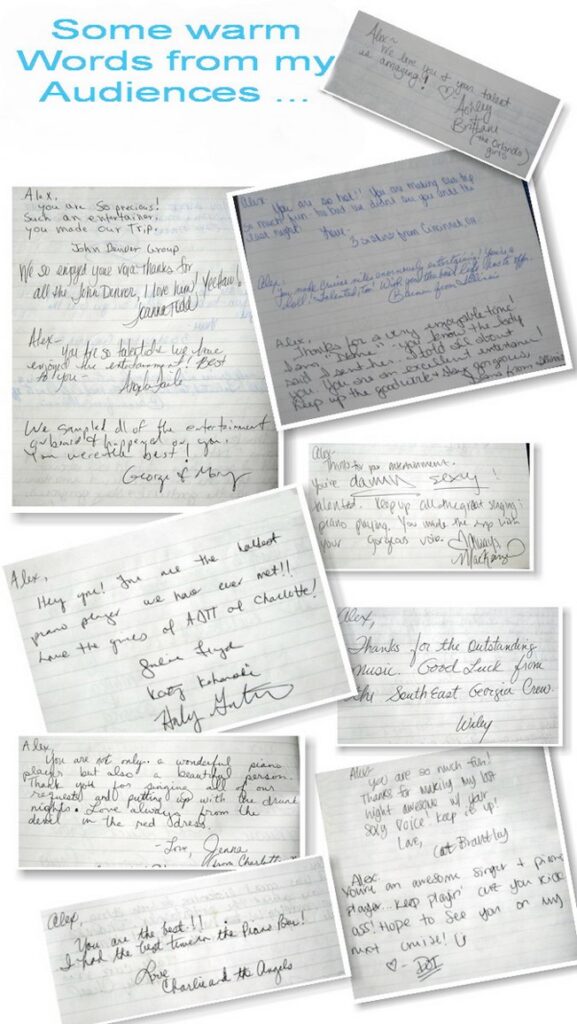 Some warm
Words from my
Audiences ...
Alex~
We love you & your talent
is amazing! ♡
Ashley
Brittani
(the Orlando
girls)
Alex,
you are so precious!
Such an entertainer.
you made our Trip.
John Denver Group
We so enjoyed your voice thanks for
all the John Denver, I love him! Yeehaw!
Joanna Tidd
Alex~
You are so talented we have
enjoyed the entertainment! Best
to you ~
Angela
We sampled all of the entertainment
onboard & happened on you.
You were the best!
George &
Alex
You are so hot!! You are making our trip
so much fun. too bad we didn't see you until the
last night
3 from Cincinnati, OH
Alex,
You made cruise enormously entertaining! You're a
doll! & talented, too! Wish you the best
from Illinois
Alex,
Thanks for a very enjoyable time!
I am "Diane" - you know the lady
said I sent her. I told all about
you. You are an excellent entertainer!
Keep up the good work & stay gorgeous,
from
Alex~
Thanks for your entertainment.
You're damn sexy!
talented. Keep up all the great singing &
piano playing. You made the trip with
your gorgeous voice.
♡ Always,
Mackenzie
Alex,
Hey you! You are the hottest
piano player we have ever met!!
Love the girls of AOTT of Charlotte!
Katy
Alex,
Thanks for the outstanding
music. Good Luck from
the SouthEast Georgia Crew.
Wiley
Alex,
You are not only a wonderful piano
player but also a beautiful person.
Thank you for singing all of our
requests and putting up with the drunk
nights. Love always from the
devil in the red dress.
- Love, Jenna
from Charlotte
Alex
you are so much fun!
Thanks for making my last
night awesome w/ your
sexy voice! keep it up!
Love,
Cat Brantley
Alex,
You're an awesome singer & piano
player... Keep playin' cuz you kick
ass! Hope to see you on my
next cruise!
♡ -
Alex,
You are the best!!
I had the best time in the Piano Bar!
Love
Charlie and the Angels